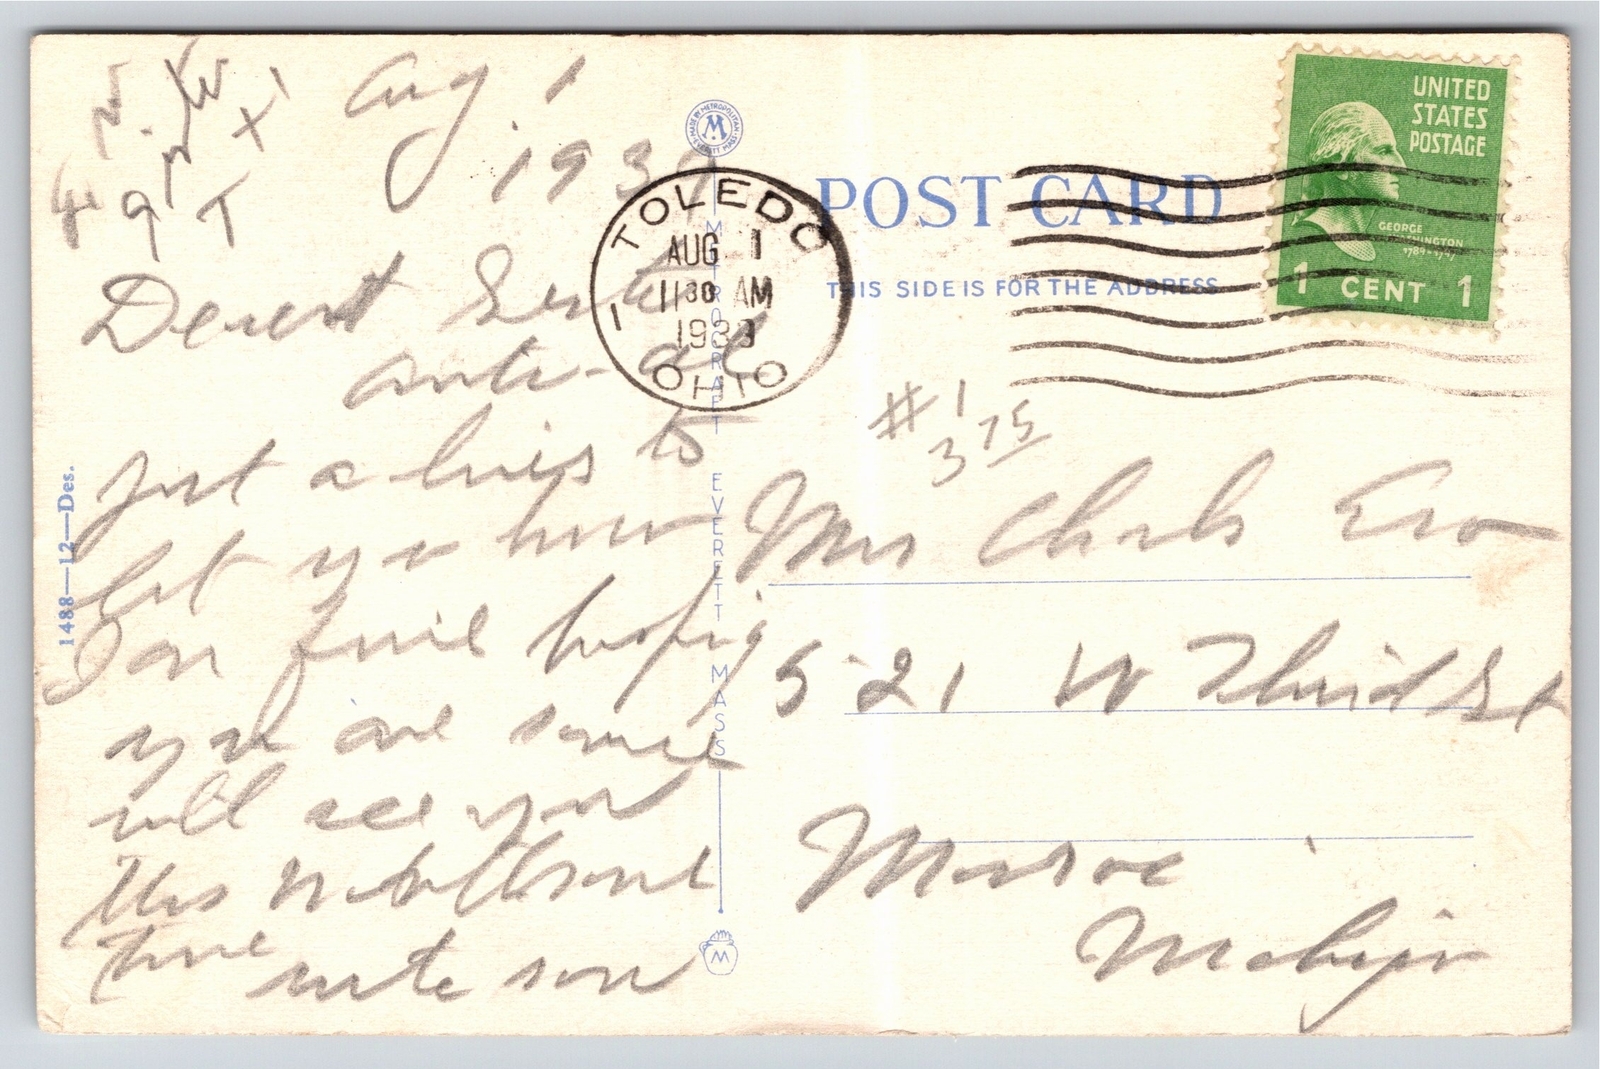 Aug 1
1939
Dearest Sister
and all
Just a lines to
let you know
I am fine hoping
you are same
will see you
this
time
write soon
MADE BY METROPOLITAN
EVERETT MASS.
M
METROCRAFT EVERETT MASS
M
1488—12—Des.
TOLEDO
AUG 1
11 30 AM
1939
OHIO
1
POST CARD
THIS SIDE IS FOR THE ADDRESS
UNITED
STATES
POSTAGE
GEORGE
WASHINGTON
1789-1797
1 CENT 1
#1
3 75
Mrs Charls
521 W Third St
Monroe
Michign